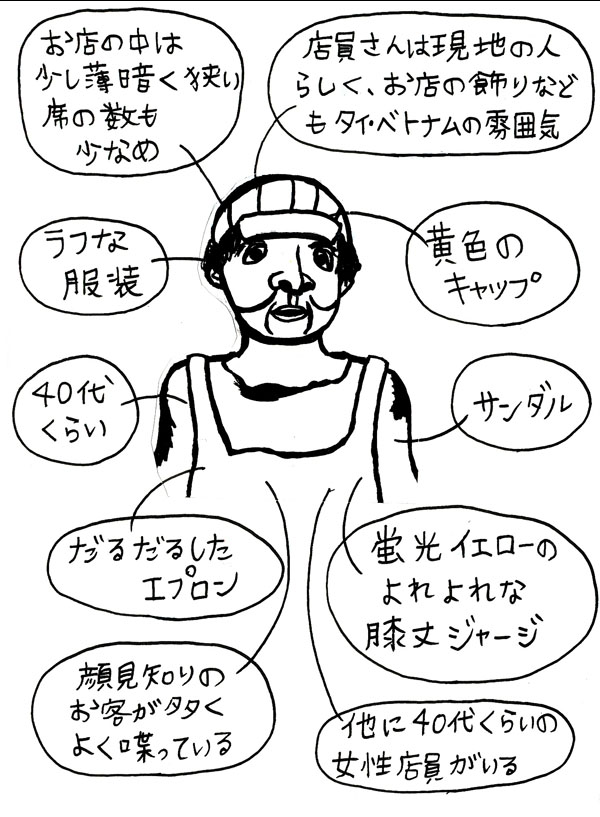 お店の中は
少し薄暗く狭い
席の数も
少なめ
店員さんは現地の人
らしく、お店の飾りなど
もタイ・ベトナムの雰囲気
ラフな
服装
黄色の
キャップ
40代
くらい
サンダル
だるだるした
エプロン
蛍光イエローの
よれよれな
膝丈ジャージ
顔見知りの
お客が多く
よく喋っている
他に40代くらいの
女性店員がいる